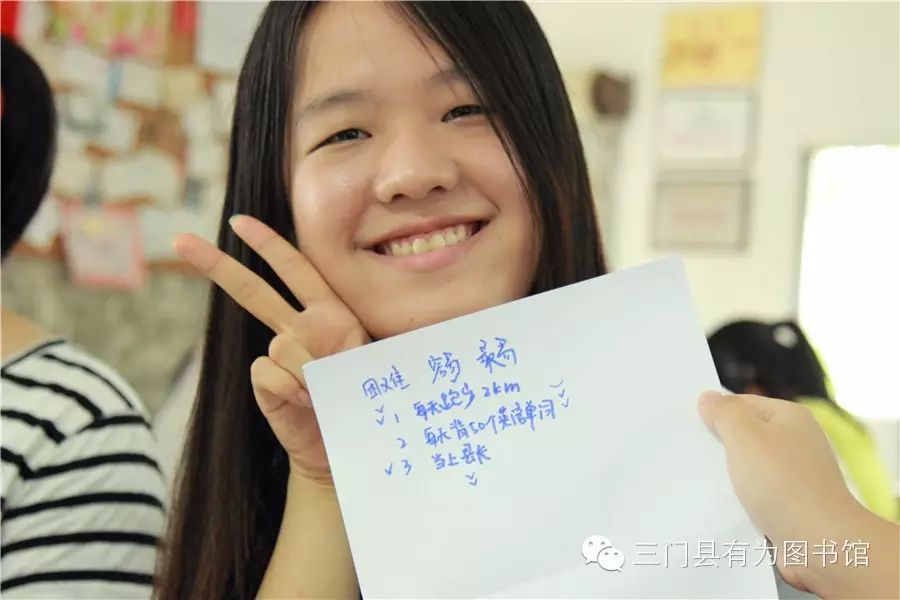 困难 容易 最高
1 每天跑步2km
2 每天背50个英语单词
3 当上县长
三门县有为图书馆